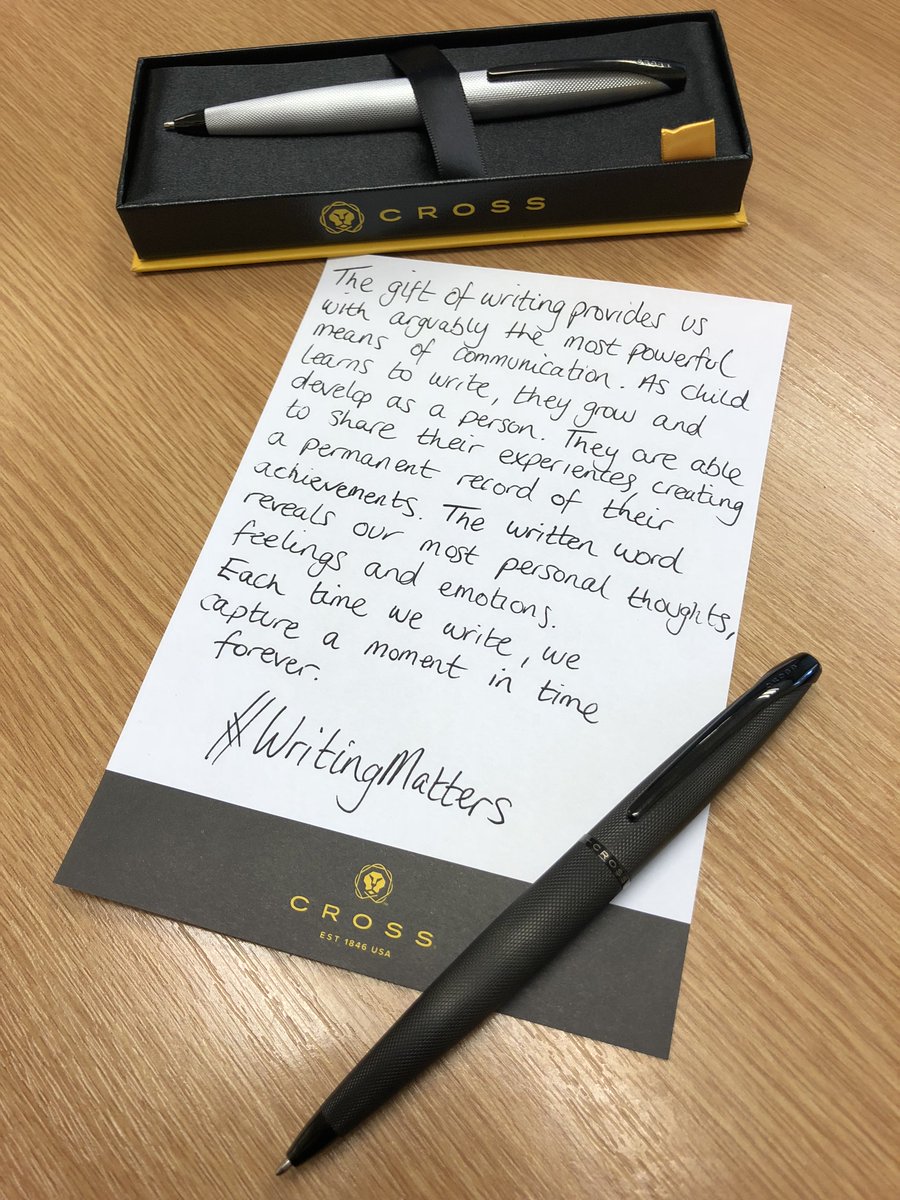 CROSS
CROSS
The gift of writing provides us
with arguably the most powerful
means of communication. As child
learns to write, they grow and
develop as a person. They are able
to share their experientes, creating
a permanent record of their
achievements. The written word
reveals our most personal thoughts,
feelings and emotions.
Each time we write, we
capture a moment in time
forever.
#WritingMatters
CROSS
CROSS
CROSS
EST 1846 USA